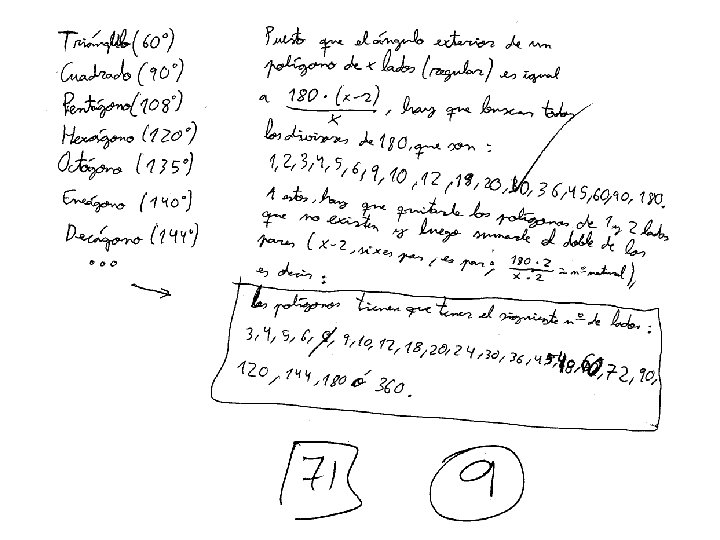 Triángulo (60°)
Cuadrado (90°)
Pentágono (108°)
Hexágono (120°)
Octógono (135°)
Eneágono (140°)
Decágono (144°)
...
Puesto que el ángulo exterior de un
polígono de x lados (regular) es igual
a 180·(x-2)/x, hay que buscar todos
los divisores de 180, que son:
1, 2, 3, 4, 5, 6, 9, 10, 12, 18, 20, 30, 36, 45, 60, 90, 180.
A estos, hay que quitarle los polígonos de 1 y 2 lados
que no existen y luego sumarle el doble de los
pares (x-2, si x es par, es par; 180·2/x·2 = nº natural),
es decir:
Los polígonos tienen que tener el siguiente nº de lados:
3, 4, 5, 6, 8, 9, 10, 12, 18, 20, 24, 30, 36, 45, 60, 72, 90,
120, 144, 180 ó 360.
71
9